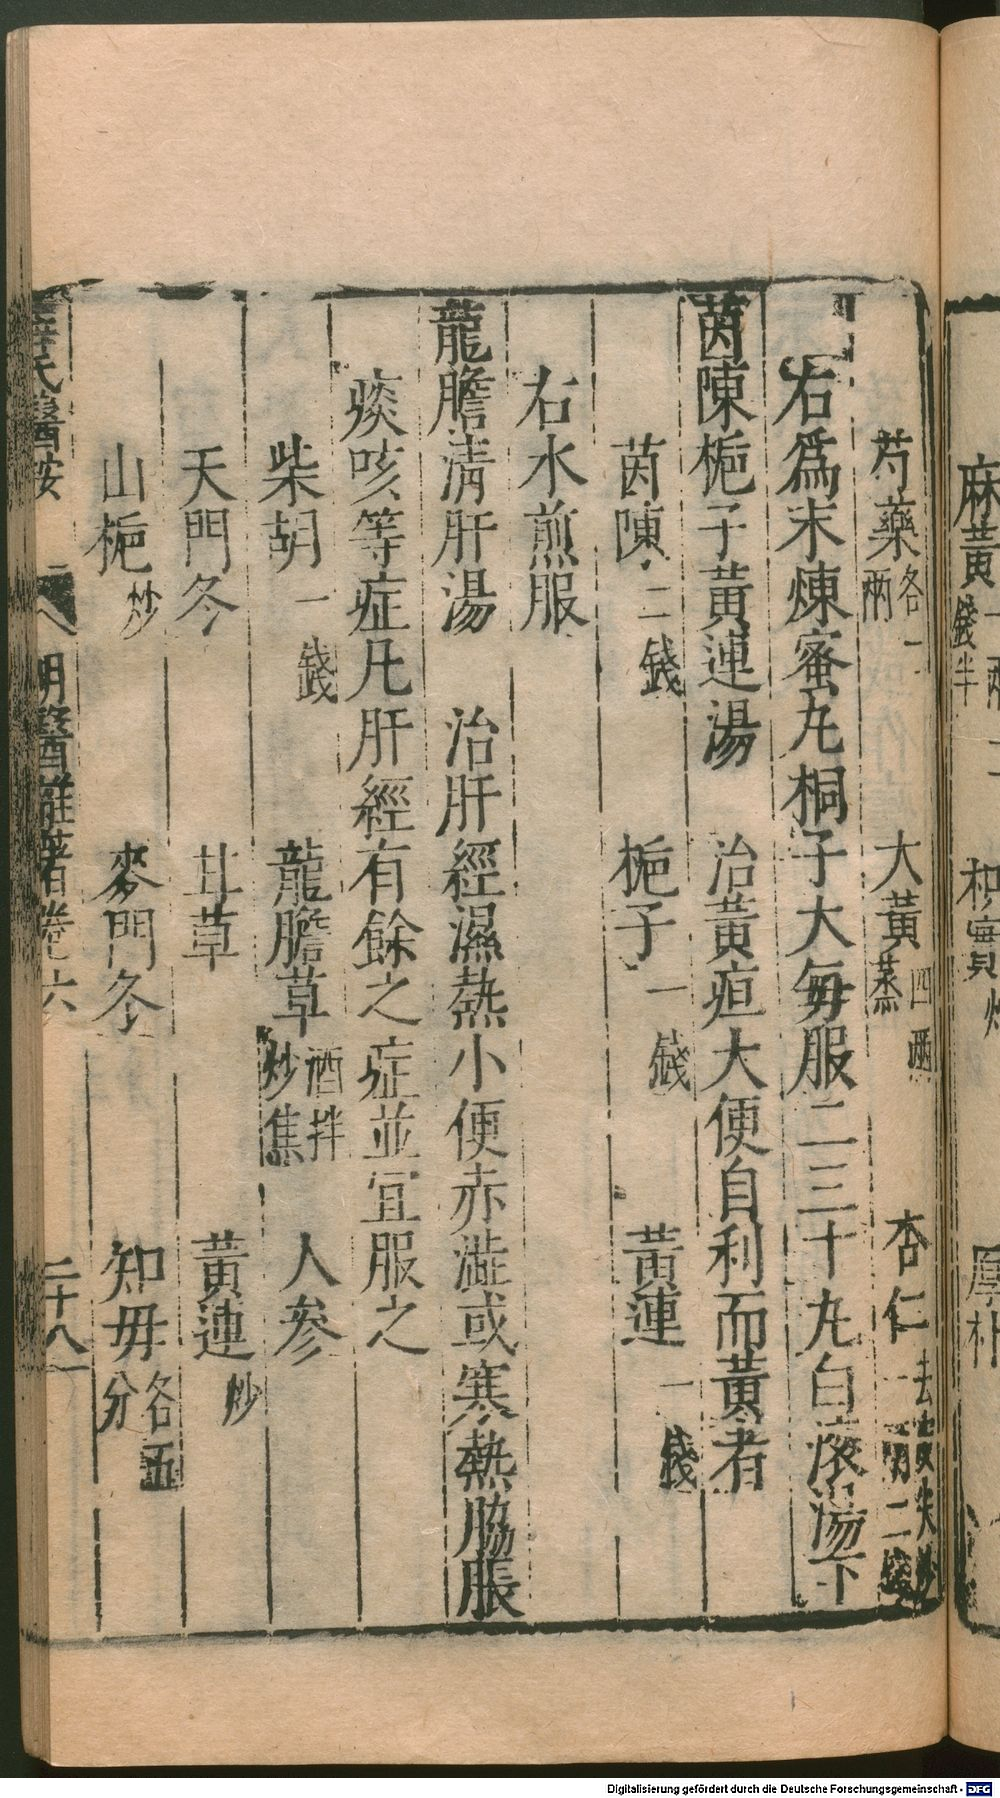 麻黃一兩 枳實炒 厚朴
錢半
芍藥各一兩 大黃蒸四兩 杏仁去皮尖炒一兩二錢
右爲末煉蜜丸桐子大每服二三十丸白滚湯下
茵陳梔子黃連湯 治黃疸大便自利而黃者
茵陳二錢 梔子一錢 黃連一錢
右水煎服
龍膽清肝湯 治肝經濕熱小便赤澁或寒熱脇脹
痰咳等症凡肝經有餘之症並宜服之
柴胡一錢 龍膽草酒拌炒焦 人參
天門冬 甘草 黃連炒
山梔炒 麥門冬 知毋各五分
薛氏醫按 八 明醫雜著卷六 二十八
Digitalisierung gefördert durch die Deutsche Forschungsgemeinschaft - DFG